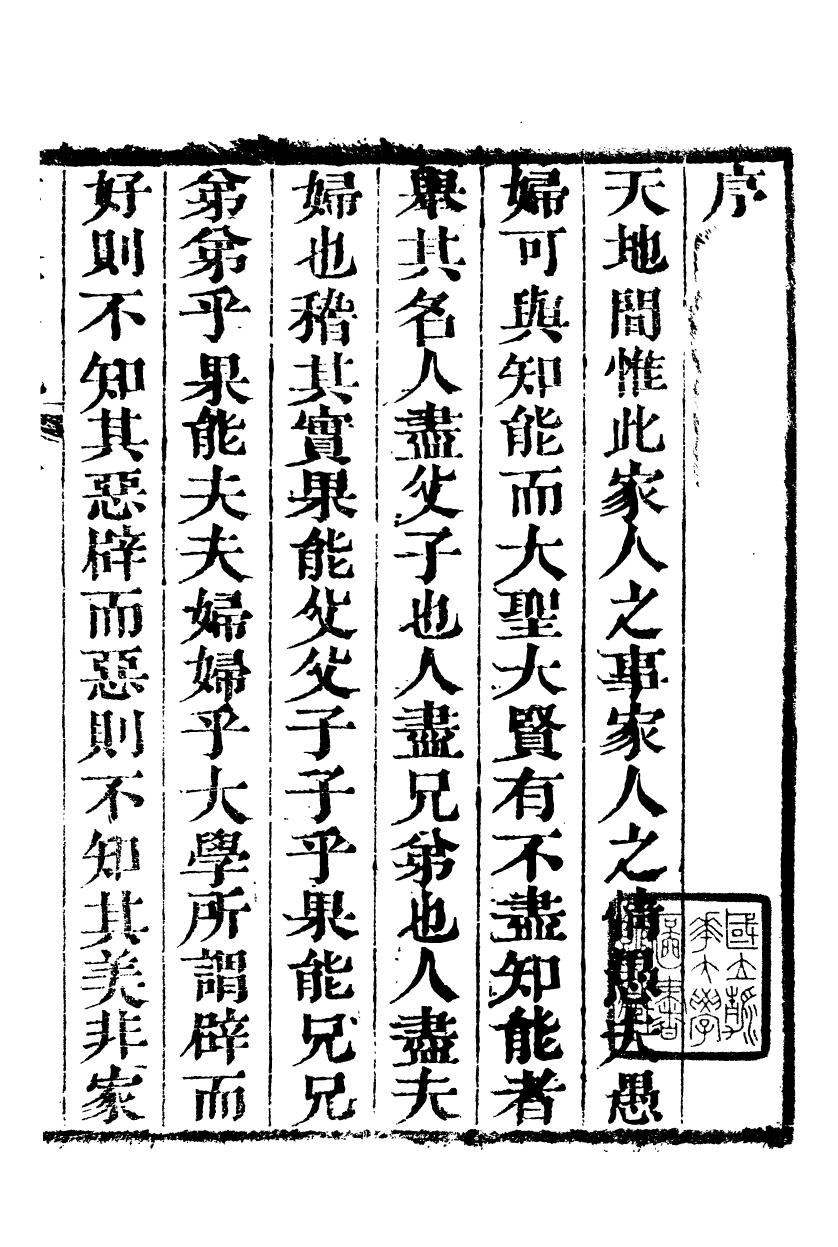 序
天地間惟此家人之事家人之情愚夫愚
婦可與知能而大聖大賢有不盡知能者
舉其名人盡父子也人盡兄弟也人盡夫
婦也稽其實果能父父子子乎果能兄兄
弟弟乎果能夫夫婦婦乎大學所謂辟而
好則不知其惡辟而惡則不知其美非家
國立清
華大學